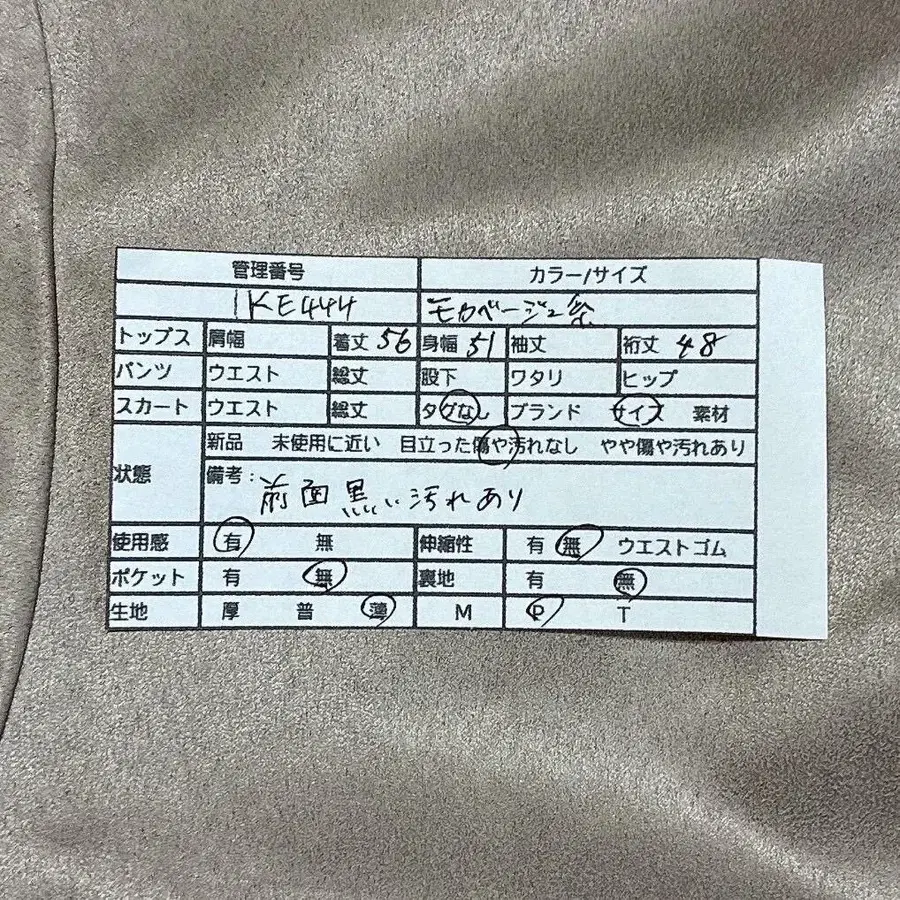 管理番号 カラー/サイズ
IKE444 モカベージュ系
トップス 肩幅 着丈 56 身幅 51 袖丈 裄丈 48
パンツ ウエスト 総丈 股下 ワタリ ヒップ
スカート ウエスト 総丈 タグなし ブランド サイズ 素材
新品 未使用に近い 目立った傷や汚れなし やや傷や汚れあり
状態 備考:前面黒い汚れあり
使用感 有 無 伸縮性 有 無 ウエストゴム
ポケット 有 無 裏地 有 無
生地 厚 普 薄 M P T